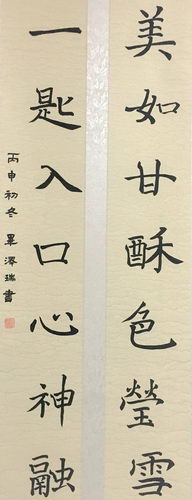 美如甘酥色瑩雪
一匙入口心神融
丙申初冬 畢澤瑞書